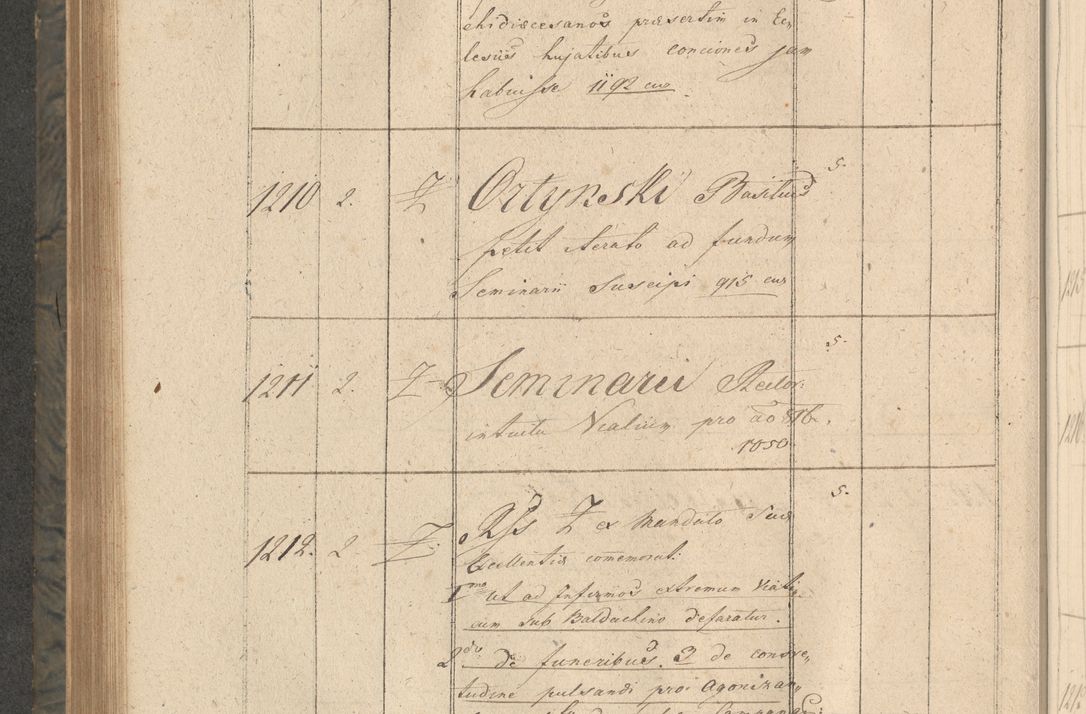 chidiœcesanos præsertim in Ec,
lesiis hujatibus conciones jam
habuisse 1192 eus
5.
1210 2. Ortynski Basilius
petit iterato ad fundum
Seminarii Suscipi 915 eus
5.
1211 2. Seminarii Rector
intuitu Vealium pro ao 816.
1050
5.
1212. 2 ex Mandato Suæ
Excellentiæ commemorat:
1mo ut ad Infirmos extremum Viati,
cum sub Baldachino deferatur.
2do de funeribus. 3 de consve,
tudine pulsandi pro Agonizan,